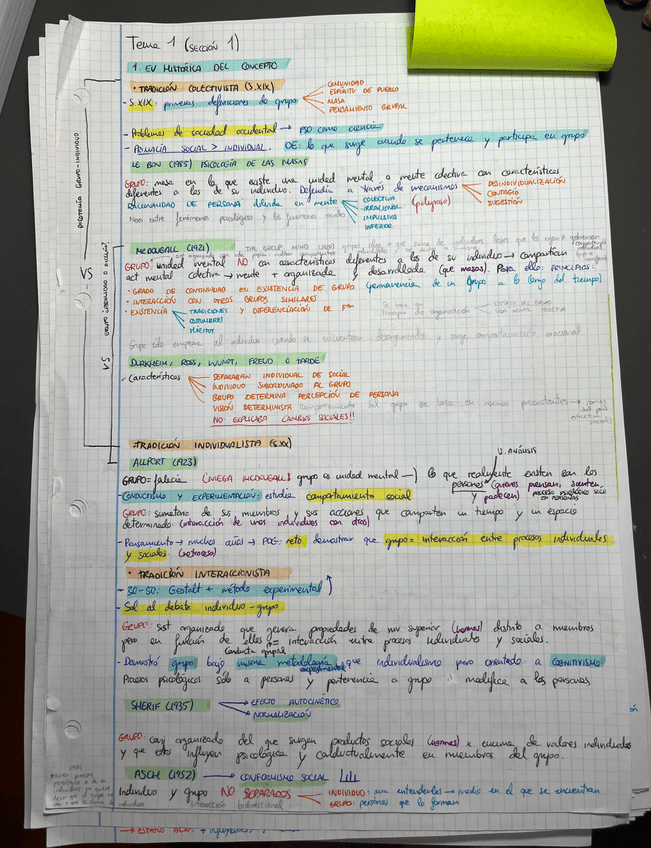 Tema 1 (SECCIÓN 1)
1. EV HISTÓRICA DEL CONCEPTO
· TRADICIÓN COLECTIVISTA (S.XIX)
COMUNIDAD
ESPÍRITU DE PUEBLO
- S.XIX: primeras definiciones de grupo
MASA
PENSAMIENTO GRUPAL
- Problemas de sociedad occidental → PSO como ciencia
- PRIMACÍA SOCIAL > INDIVIDUAL. OE: lo que surge cuando se pertenece y participa en grupo
LE BON (1985) PSICOLOGÍA DE LAS MASAS
GRUPO: masa en la que existe una unidad mental o mente colectiva con características
diferentes a las de su individuo. Defendía a través de mecanismos
DESINDIVIDUALIZACIÓN
CONTAGIO
SUGESTIÓN
RACIONALIDAD DE PERSONA diluida en mente
COLECTIVA
IRRACIONAL
IMPULSIVA
INFERIOR
(peligroso)
Nexo entre fenómenos psicológicos y los fenómenos sociales
DICOTOMÍA GRUPO-INDIVIDUO
VS
VS
McDOUGALL (1921) THE GROUP MIND
GRUPO: unidad mental NO con características diferentes a las de su individuo → compartían
act mental colectiva → mente + organizada y desarrollada (que masas). Para ello: PRINCIPIOS:
· GRADO DE CONTINUIDAD EN EXISTENCIA DE GRUPO (permanencia de un grupo a lo largo del tiempo)
· INTERACCIÓN CON OTROS GRUPOS SIMILARES
· EXISTENCIA
TRADICIONES Y DIFERENCIACIÓN DE Fºn
COSTUMBRES
HÁBITOS
Grupo sólo empeora al individuo cuando se encuentran desorganizados y surge comportamiento emocional
DURKHEIM, ROSS, WUNDT, FREUD O TARDE
- Características
SEPARABAN INDIVIDUAL DE SOCIAL
INDIVIDUO SUBORDINADO AL GRUPO
GRUPO DETERMINA PERCEPCIÓN DE PERSONA
VISIÓN DETERMINISTA
NO EXPLICABA CAMBIOS SOCIALES!!
· TRADICIÓN INDIVIDUALISTA (S.XX)
ALLPORT (1923)
U. ANÁLISIS
GRUPO = falacia (NIEGA McDOUGALL) grupo es unidad mental → lo que realmente existen son las
personas (quienes piensan, sienten,
y padecen)
- CONDUCTISMO Y EXPERIMENTACIÓN: estudia comportamiento social
GRUPO: sumatorio de sus miembros y sus acciones que comparten un tiempo y un espacio
determinado (interacción de unos individuos con otros)
- Pensamiento → muchos años → POG: reto demostrar que grupo = interacción entre procesos individuales
y sociales (retroceso)
· TRADICIÓN INTERACCIONISTA
- 30-50: Gestalt + método experimental
- Sol al debate individuo-grupo
GRUPO: Sist organizado que genera propiedades de niv superior (normas) distinto a miembros
pero en función de ellos = interacción entre procesos individuales y sociales.
Conducta grupal
- Demostró grupo bajo misma metodología que individualismo pero orientado a COGNITIVISMO
experimental
Procesos psicológicos sólo a personas y pertenencia a grupo modifica a las personas
SHERIF (1935)
EFECTO AUTOCINÉTICO
NORMALIZACIÓN
GRUPO: conj organizado del que surgen productos sociales (normas) x encima de valores individuales
y que estos influyen psicológica y conductualmente en miembros del grupo.
ASCH (1952) → CONFORMISMO SOCIAL
Individuo y grupo NO SEPARADOS
INDIVIDUO: para entenderlos → medio en el que se encuentran
GRUPO: personas que lo forman
interacción bidireccional